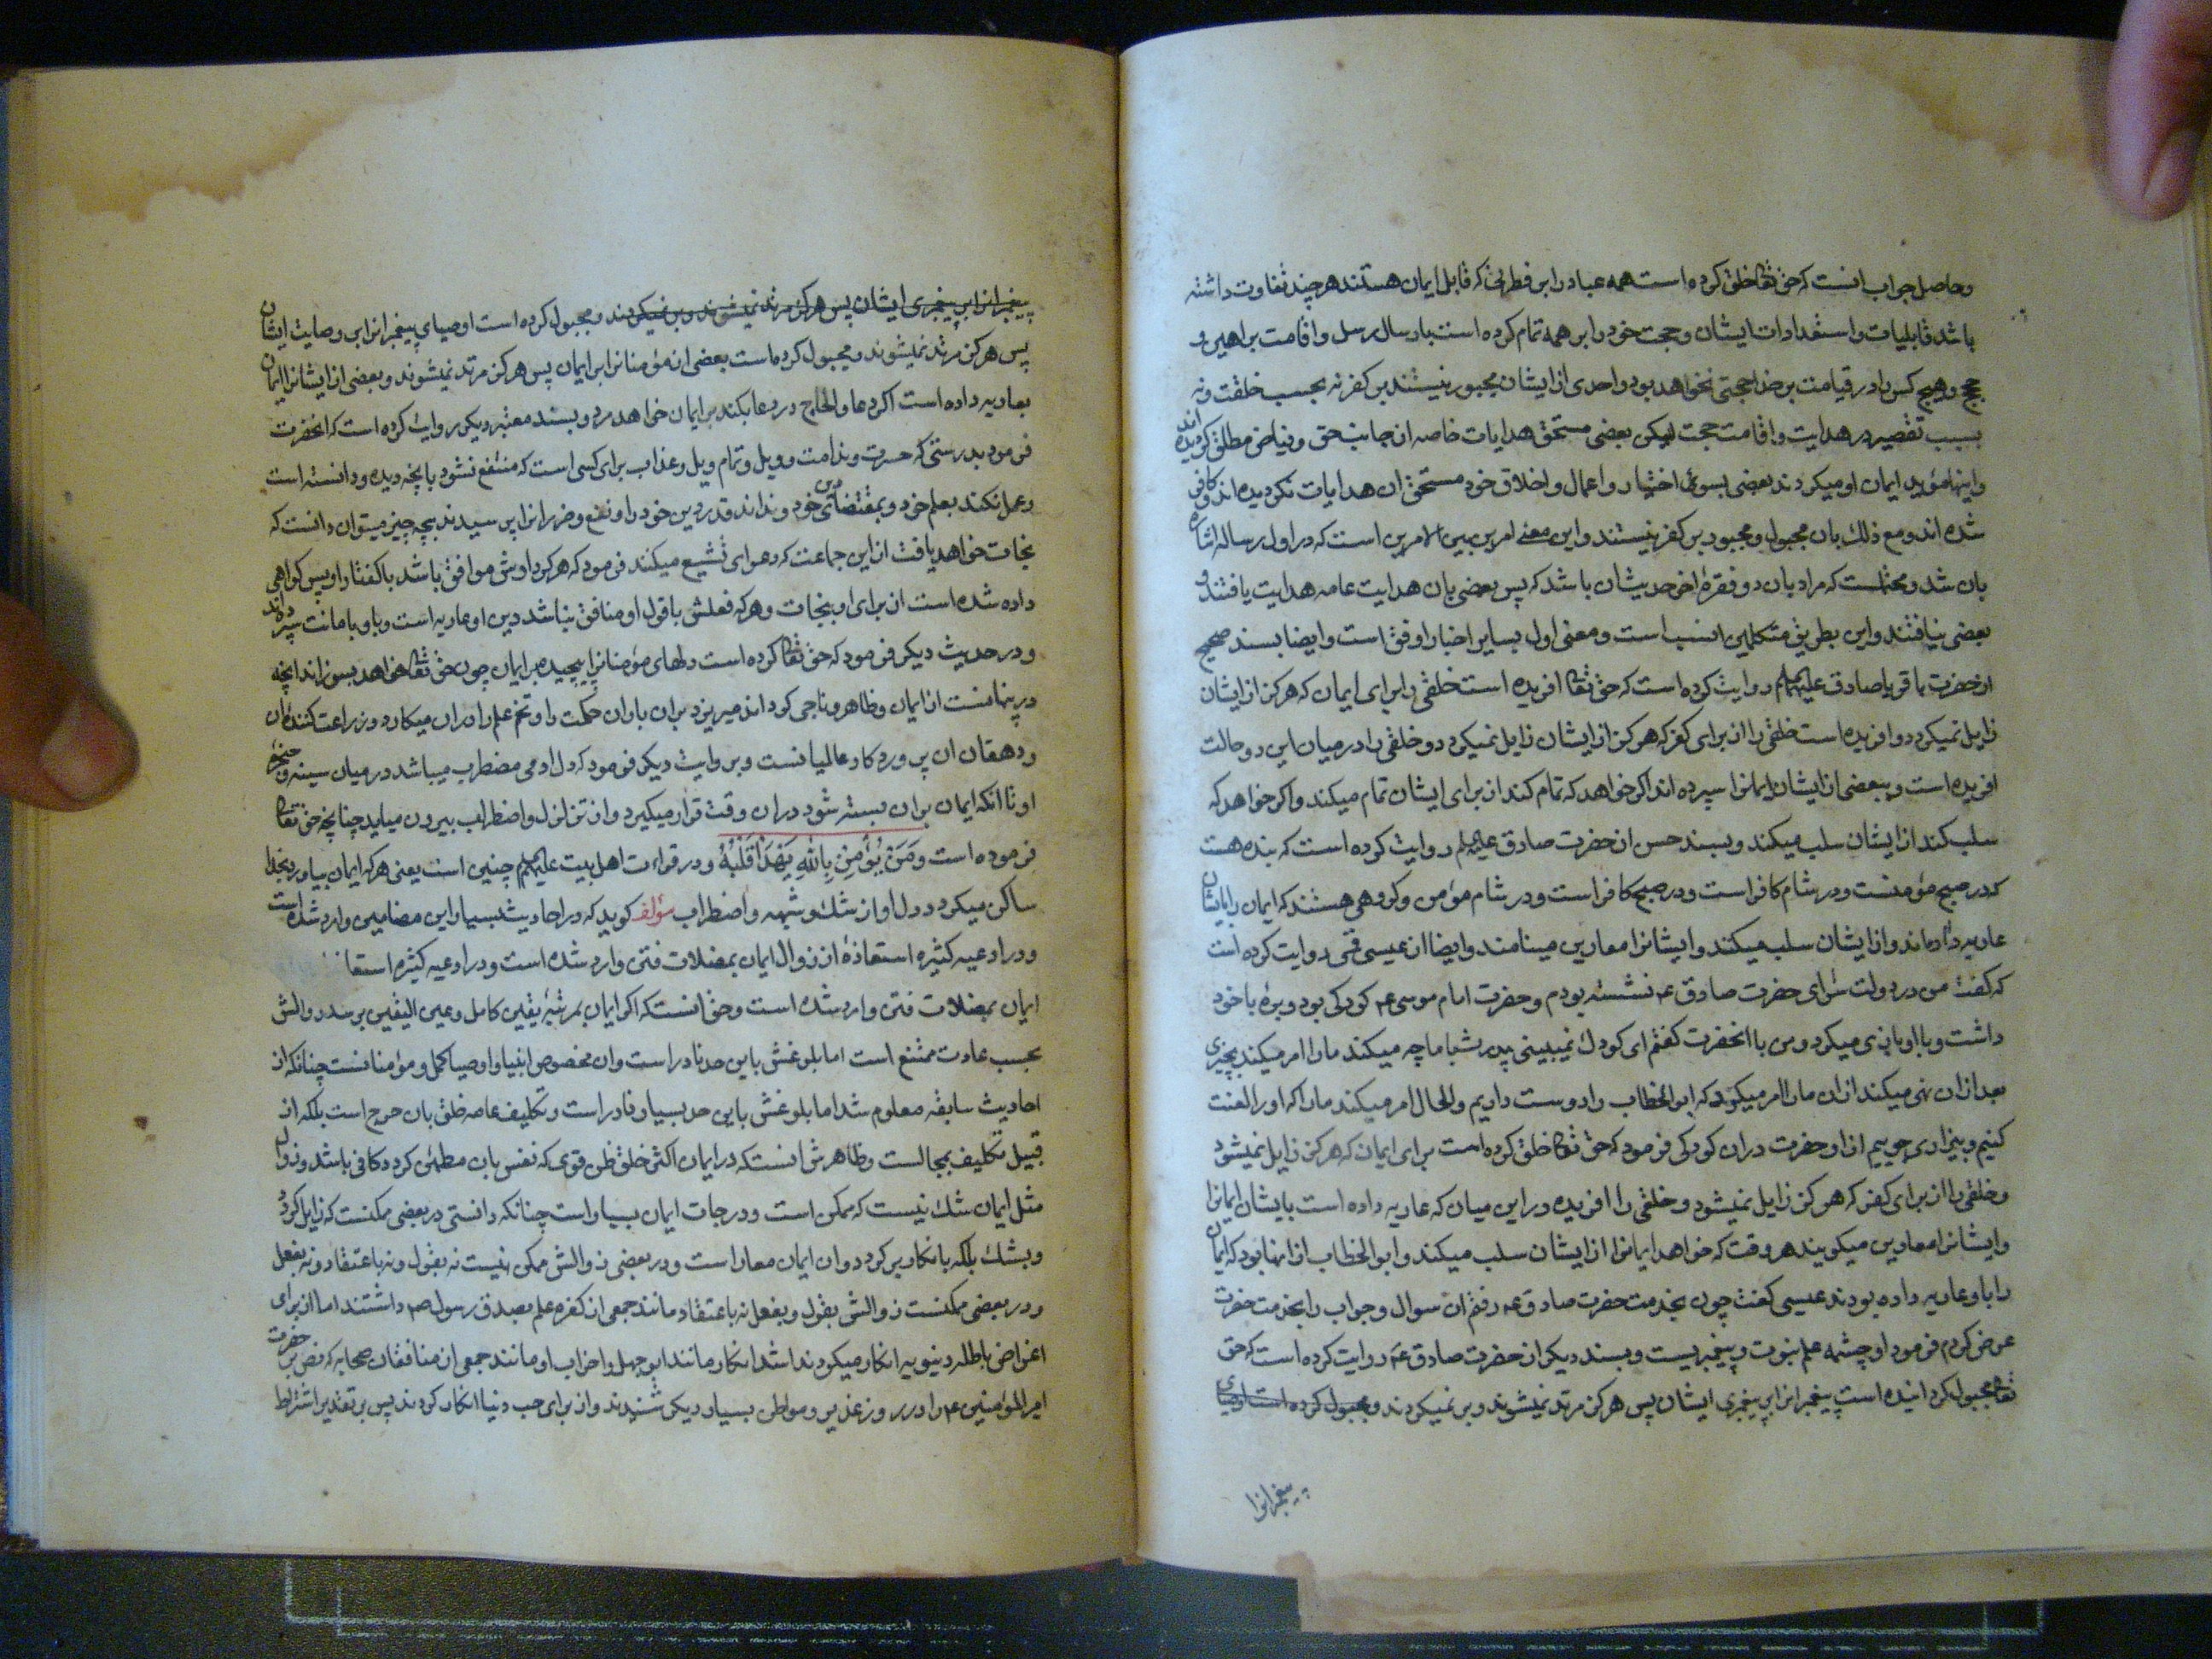 وحاصل جواب انست که حق تعالی خلق کرده است همه عباد را بر فطرتی که قابل ایمان هستند هر چند تفاوت داشته
باشد قابلیات و استعدادات ایشان و حجت خود را بر همه تمام کرده است بارسال رسل و اقامت براهین و
حجج و هیچ کس را در قیامت بر خدا حجتی نخواهد بود و احدی از ایشان مجبور نیستند بر کفر نه بحسب خلقت و نه
بسبب تقصیر در هدایت و اقامت حجت لیکن بعضی مستحق هدایات خاصه از جانب حق و فیاض مطلق کردیده اند
و اینها مؤید ایمان او میکردند بعضی بسوء اختیار و اعمال و اخلاق خود مستحق ان هدایات نکردیده اند و کافر
شده اند و مع ذلک بان مجبول و مجبور بر کفر نیستند و این معنی امر بین الامرین است که در اول رساله اشاره
بان شد و محتملست که مراد بان دو فقرهٔ اخر حدیث ان باشد که پس بعضی بان هدایت عامه هدایت یافتند و
بعضی نیافتند و این بطریق متکلمین انسب است و معنی اول بسایر اخبار اوفق است و ایضا بسند صحیح
از حضرت باقر یا صادق علیهما السلام روایت کرده است که حق تعالی افریده است خلقی را برای ایمان که هرکز از ایشان
زایل نمیکردد و افریده است خلقی را از برای کفر که هرکز از ایشان زایل نمیکردد و خلقی را در میان این دو حالت
افریده است و ببعضی از ایشان ایمانرا سپرده اند اکر خواهد که تمام کند از برای ایشان تمام میکند و اکر خواهد که
سلب کند از ایشان سلب میکند و بسند حسن از حضرت صادق علیه السلم روایت کرده است که بنده هست
که در صبح مؤمنست و در شام کافر است و در صبح کافر است و در شام مؤمن و کروهی هستند که ایمان را بایشان
عاریه داده اند و از ایشان سلب میکند و ایشانرا معارین مینامند و ایضا از عیسی قمی روایت کرده است
که گفت من در دولت سرای حضرت صادق ع نشسته بودم و حضرت امام موسی ع کودکی بود و برهٔ با خود
داشت و با او بازی میکرد و من با انحضرت کفتم ای کودک نمیبینی پدر شما با ما چه میکند ما را امر میکند بچیزی
بعد از ان نهی میکند از ان ما را امر میکرد که ابو الخطاب را دوست داریم والحال امر میکند ما را که او را لعنت
کنیم و بیزاری جوییم از او حضرت در ان کودکی فرمود که حق تعالی خلق کرده است برای ایمان که هرکز زایل نمیشود
و خلقی را از برای کفر که هرکز زایل نمیشود و خلقی را افریده در این میان که عاریه داده است بایشان ایمانرا
و ایشانرا معارین میکویند هر وقت که خواهد ایمانرا از ایشان سلب میکند و ابو الخطاب از انها بود که ایمان
را باو عاریه داده بودند عیسی کفت چون بخدمت حضرت صادق ع رفتم ان سوال و جواب را بخدمت حضرت
عرض کردم فرمود او چشمه علم نبوت و پیغمبریست و بسند دیکر از حضرت صادق ع روایت کرده است که حق
تعالی مجبول کردانیده است پیغمبرانرا بر پیغمبری ایشان پس هرکز مرتد نمیشوند و بر نمیکردند و مجبول کرده است اوصیای
پیغمبرانرا
پیغمبرانرا بر پیغمبری ایشان پس هرکز مرتد نمیشوند و بر نمیکردند و مجبول کرده است اوصیای پیغمبرانرا بر وصایت ایشان
پس هرکز مرتد نمیشوند و مجبول کرده است بعضی از مؤمنانرا بر ایمان پس هرکز مرتد نمیشوند و بعضی از ایشانرا ایمان
بعاریه داده است اکر دعا و الحاح در دعا بکند بر ایمان خواهد مرد و بسند معتبر دیکر روایت کرده است که انحضرت
فرمود بدرستی که حسرت و ندامت و ویل و تمام ویل و عذاب برای کسی است که منتفع نشود بانچه دیده و دانسته است
و عمل نکند بعلم خود و بمقتضای خود و نداند قدر دین خود را و نفع و ضرر انرا پرسیدند بچه چیز میتوان دانست که
نجات خواهد یافت از این جماعت که دعوای تشیع میکنند فرمود که هر که کردارش موافق باشد با کفتار او پس کواهی
داده شده است از برای او بنجات و هر که فعلش با قول او منافق نباشد دین او عاریه است و باو بامانت سپرده اند
و در حدیث دیکر فرمود که حق تعالی کرده است دلهای مؤمنانرا پیچیده بر ایمان چون حق تعالی خواهد بسوزاند انچه
در پنهانست از ایمان و ظاهر و ناجی کرداند میریزد بران باران حکمت را و تخم علم را در ان میکارد و زراعت کننده ان
و دهقان ان پروردکار عالمیانست و بروایت دیکر فرمود که دل ادمی مضطرب میباشد در میان سینه و حنجرهٔ
او تا انکه ایمان بر ان بسته شود در ان وقت قرار میکیرد و از تزلزل و اضطراب بیرون میاید چنانچه حق تعالی
فرموده است وَمَنْ یُؤْمِنْ بِاللّهِ یَهْدَأ قَلْبُهُ و در قراءت اهل بیت علیهم السلم چنین است یعنی هر که ایمان بیاورد بخدا
ساکن میکردد دل او از شک و شبهه و اضطراب مؤلف کوید که در احادیث بسیار این مضامین وارد شده است
و در ادعیه کثیره استعاذه از زوال ایمان بمضلات فتن وارد شده است و در ادعیه کثیره استعا
ایمان بمضلات فتن وارد شده است و حق انست که اکر ایمان بمرتبه یقین کامل و عین الیقین برسد زوالش
بحسب عادت ممتنع است اما بلوغش باین حد نادر است و ان مخصوص انبیا و اوصیا و کمل مومنانست چنانکه از
احادیث سابقه معلوم شد اما بلوغش باین حد بسیار نادر است و تکلیف عامه خلق بان حرج است بلکه از
قبیل تکلیف بمحالست و ظاهرش انست که در ایمان اکثر خلق ظن قوی که نفس بان مطمئن کردد کافی باشد و زوال
مثل ایمان شک نیست که ممکن است و درجات ایمان بسیار است چنانکه دانستی در بعضی مکنست که زایل کردد
و بشک بلکه بانکار برکردد و ان ایمان معار است و در بعضی زوالش ممکن نیست نه بقول و نه باعتقاد و نه بفعل
و در بعضی ممکنست زوالش بقول و بفعل نه باعتقاد مانند جمعی از کفره علم بصدق رسول ص داشتند اما از برای
اغراض باطله دنیویه انکار میکردند اشد انکار مانند ابو جهل و احزاب او مانند جمعی از منافقان صحابه که نص بر حضرت
امیر المؤمنین ع را در روز غدیر و مواطن بسیار دیکر شنیدند و از برای حب دنیا انکار کردند پس بر تقدیر اشتراط